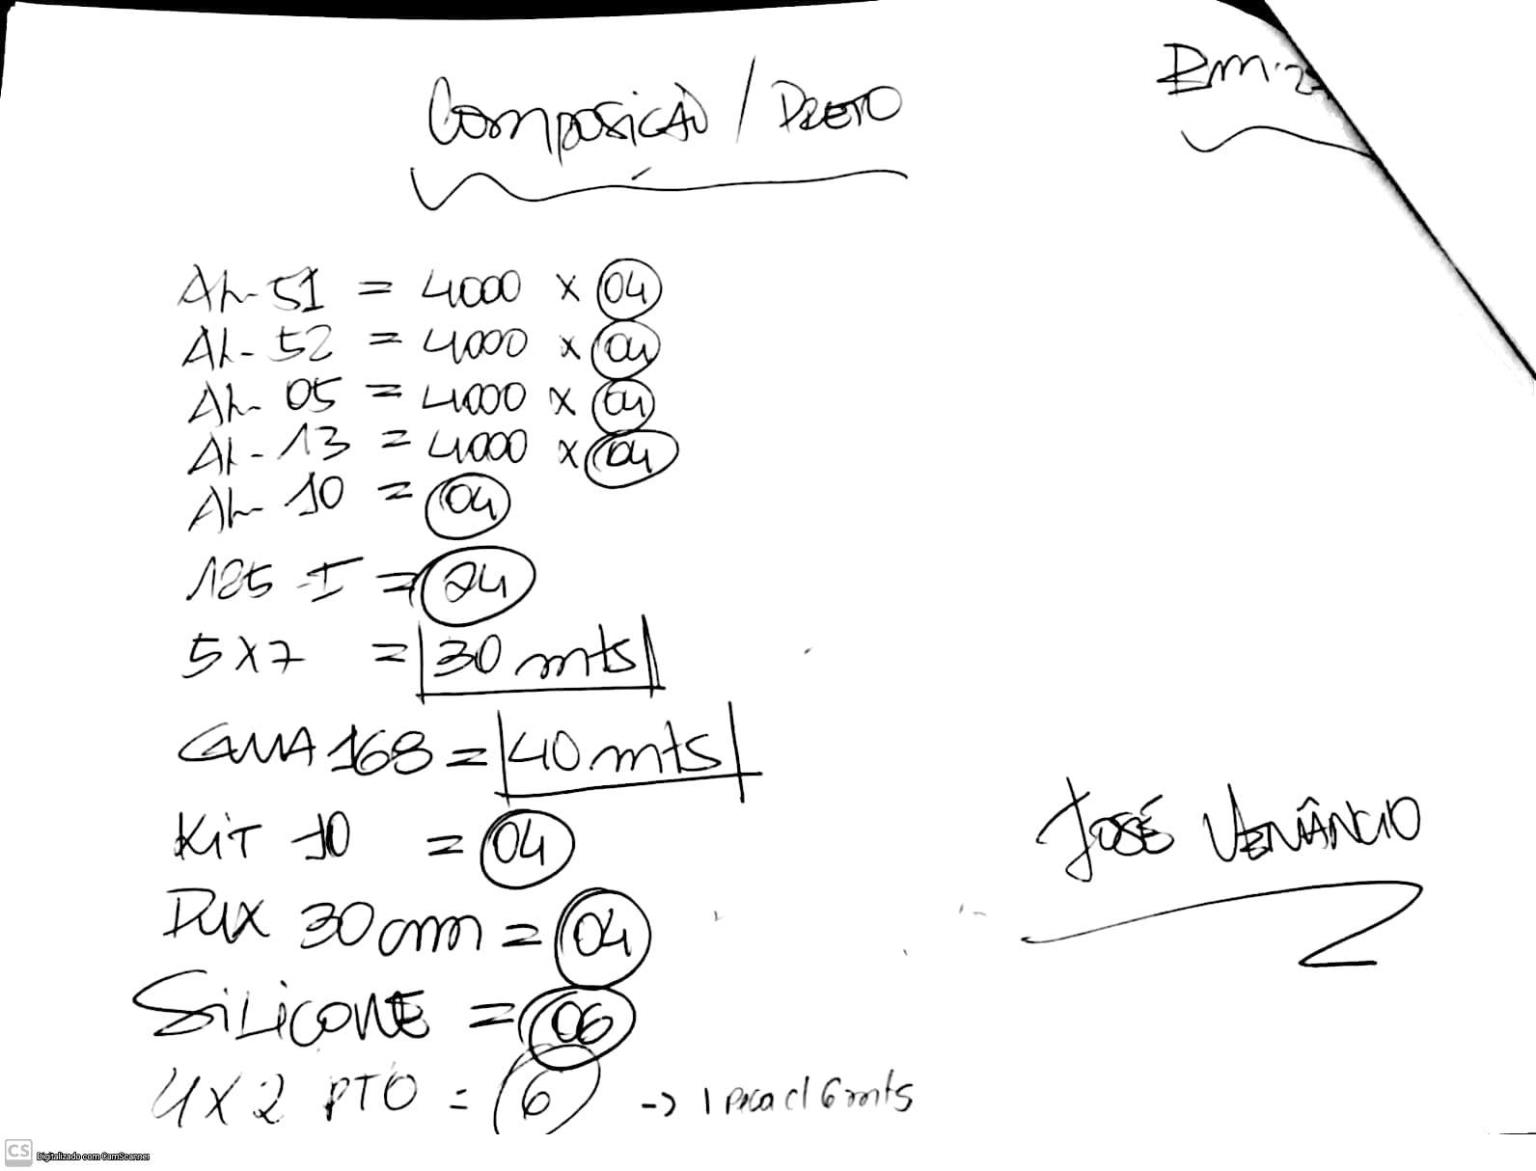 Composição / PRETO
AL-51 = 4000 x 04
AL-52 = 4000 x 04
AL-05 = 4000 x 04
AL-13 = 4000 x 04
AL-10 = 04
125-I = 24
5x7 = 30 mts
GUA 168 = 40 mts
KiT 10 = 04
JOSÉ VENÂNCIO
DUX 30cm = 04
SiLiCONE = 06
4X2 PTO = 6 -> 1 peca c/ 6 mts
CS Digitalizado com CamScanner